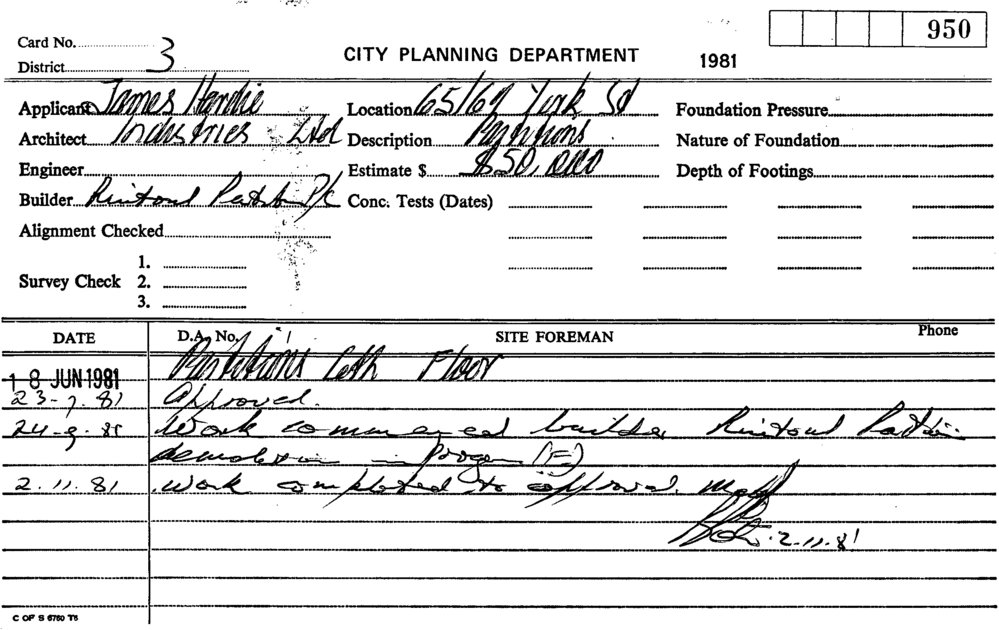 950
Card No.
District 3
CITY PLANNING DEPARTMENT 1981
Applicant James Hardie Location 65/69 York St Foundation Pressure
Architect Industries Ltd Description Partitions Nature of Foundation
Engineer Estimate $ $50,000 Depth of Footings
Builder Rintoul P/L Conc. Tests (Dates)
Alignment Checked
1.
Survey Check 2.
3.
DATE D.A. No. SITE FOREMAN Phone
18 JUN 1981 Partitions 6th Floor
23-7.81 Approved.
24-9-81 Work commenced builder Rintoul
demolition in progress (F)
2.11.81 work completed to approval.
2.11.81
C OF S 6760 T6